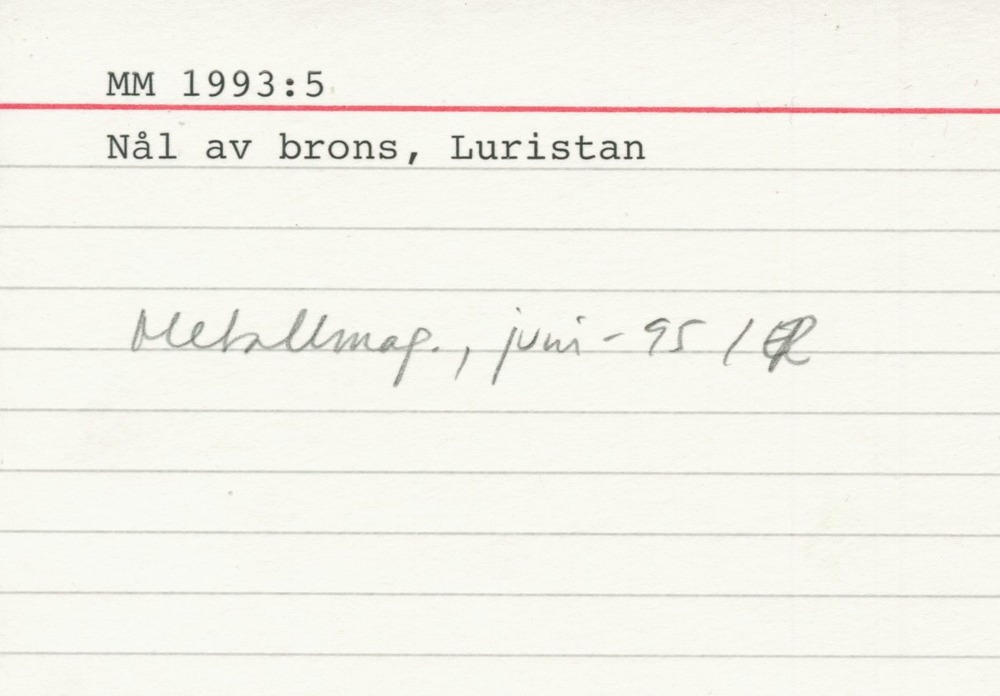 MM 1993:5
Nål av brons, Luristan
Metallmag., juni - 95 /